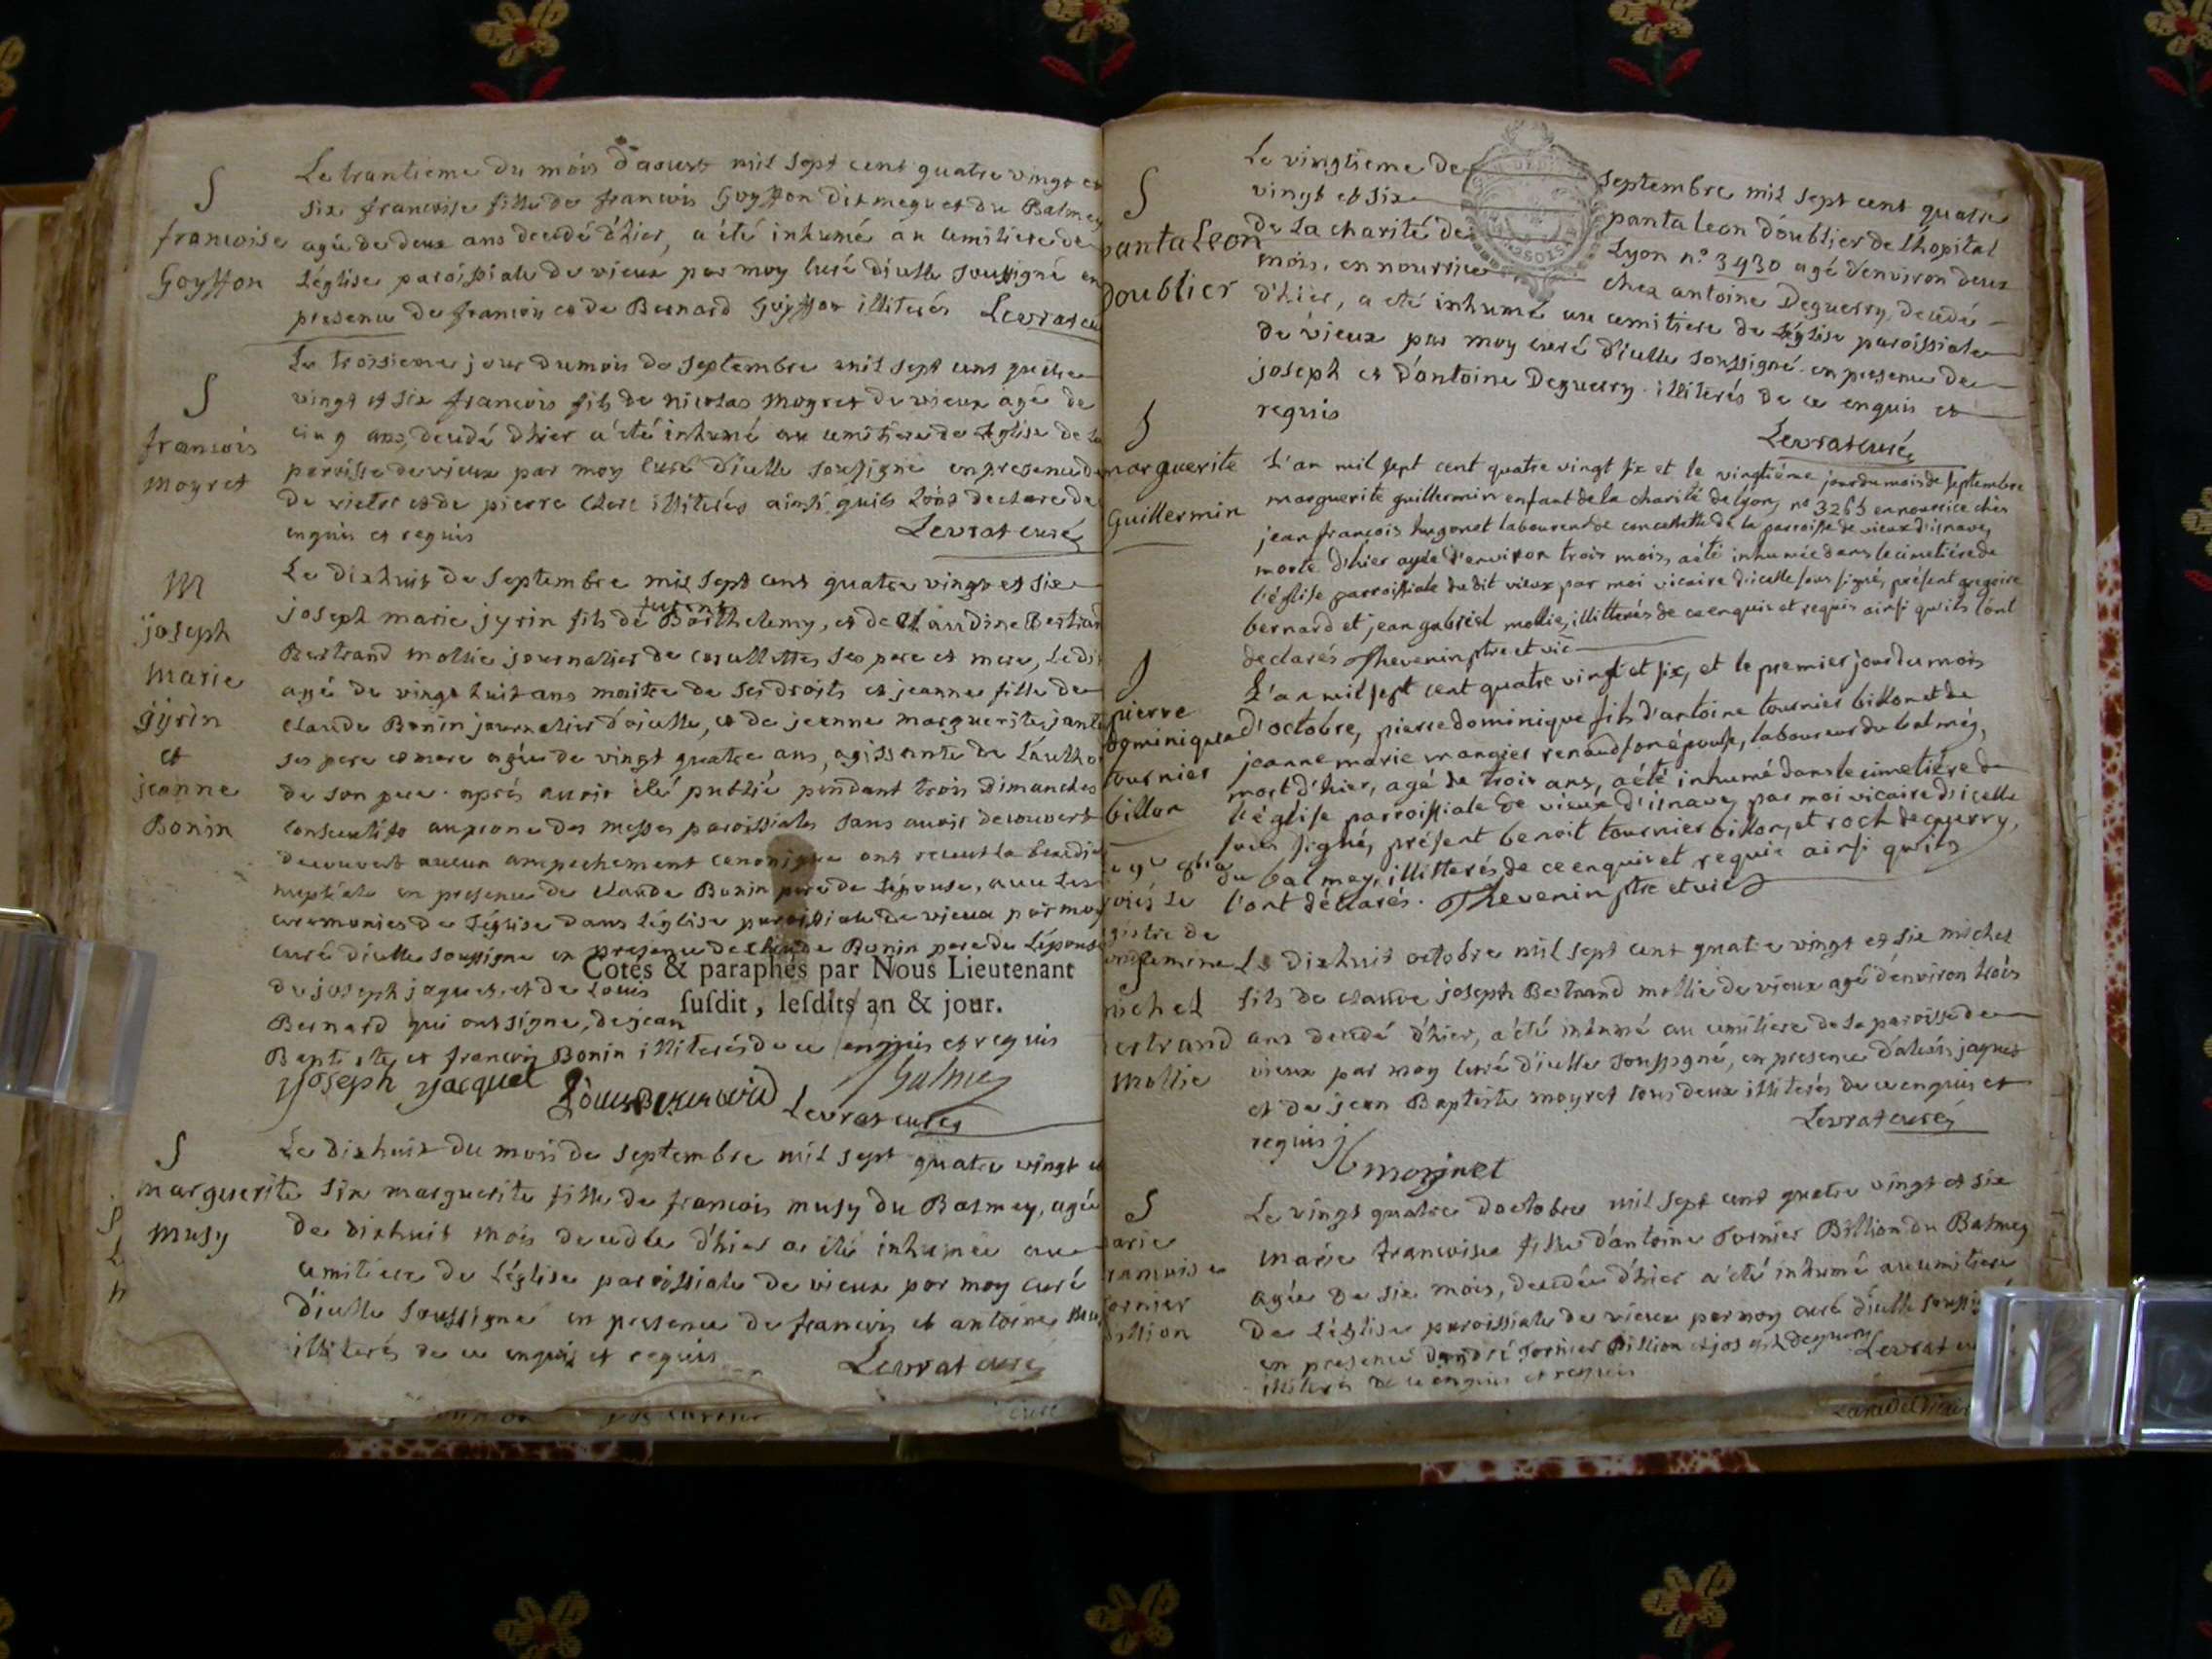 S
francoise
Goyffon
Le trantieme du mois d'aoust mil sept cent quatre vingt et
six francoise fille de francois Goyffon dit meguet du Balmey
agée de deux ans decedé d'hier, a été inhumé au cemitiere de
Léglise paroissiale de vieux par moy curé d'icelle soussigné en
presence de francois et de Bernard Goyffon illiterés Levrat cu
S
francois
moyret
Le troisieme jour du mois de septembre mil sept cent quatre
vingt et six francois fils de nicolas moyret de vieux agé de
cinq ans, decedé d'hier a été inhumé au cemitiere de léglise de la
paroisse de vieux par moy curé d'icelle soussigné en presence de
de victor et de pierre Clerc illiterés ainsi quils l'ont declare de
enquis et requis Levrat curé
M
joseph
marie
gyrin
et
jeanne
Bonin
Le dixhuit de septembre mil sept cent quatre vingt et six
joseph marie jyrin fils de Barthelemy, et de Claudine Bertrand
Bertrand mollie journalier de ses pere et mere, Ledit
agé de vingt huit ans maitre de ses droits et jeanne fille de
claude Bonin journalier d'icelle, et de jeanne marguerite
ses pere et mere agée de vingt quatre ans, agissante de L'autho
de son pere. aprés avoir été publié pendant trois dimanches
consecutifs au prone des messes paroissiales sans avoir decouvert
decouvert aucun ampechement canonique ont receut la benedi
nuptiale en presence de claude Bonin pere de Lépouse, avec les
ceremonies de l'église dans Léglise paroissiale de vieux par moy
curé d'icelle soussigné en presence de claude Bonin pere de Lépouse
Cotés & paraphés par Nous Lieutenant
susdit, lesdits an & jour.
de joseph jaquet, et de Louis
Bernard qui ont signé, de jean
Baptiste, et francois Bonin illiterés de ce enquis et requis
Joseph Jacquet Louis Bernard
Levrat curé
S
marguerite
musy
Le dixhuit du mois de septembre mil sept quatre vingt et
six marguerite fille de francois musy du Balmey, agée
de dixhuit mois decedée d'hier a été inhumée au
cemitiere de Léglise paroissiale de vieux par moy curé
d'icelle soussigné en presence de francois et antoine
illiterés de ce enquis et requis Levrat curé
S
pantaLeon
Doublier
Le vingtieme de septembre mil sept cent quatre
vingt et six pantaleon doublier de Lhopital
de La charité de Lyon n° 3930 agé d'environ deux
mois, en nourrice chez antoine Deguerry, decedé
d'hier, a eté inhumé au cemitiere de Léglise paroissiale
de vieux par moy curé d'icelle soussigné en presence de
joseph et d'antoine Deguerry illiterés de ce enquis et
requis
Levrat curé
S
marguerite
Guillermin
L'an mil sept cent quatre vingt six et le vingtiéme jour du mois de septembre
marguerite guillermin enfant de la charité de lyon, n° 3265 en nourrice chés
jean françois hugonet laboureur de de la parroisse de vieux d'isnave,
morte d'hier agée d'environ trois mois, a été inhumée dans le cimetiére de
l'église parroissiale du dit vieux par moi vicaire d'icelle soussigné, présent gregoire
bernard et jean gabriel mollie, illitterés de ce enquis et requis ainsi qu'ils l'ont
declarés Thevenin ptre et vic
S
pierre
dominique
tournier
billon
L'an mil sept cent quatre vingt et six, et le premier jour du mois
d'octobre, pierre dominique fils d'antoine tournier billon et de
jeanne marie mangier renaud son épouse, laboureur du balmey,
mort d'hier, agé de trois ans, a été inhumé dans le cimetiére de
l'église parroissiale de vieux d'isnave, par moi vicaire d'icelle
sous signé, présent benoit tournier billon, et roch deguerry,
du balmey, illitterés, de ce enquis et requis ainsi qu'ils
l'ont déclarés. Thevenin ptre et vic
S
michel
Bertrand
mollie
Le dixhuit octobre mil sept cent quatre vingt et six michel
fils de claude joseph Bertrand mollie de vieux agé d'environ trois
ans decedé d'hier, a été inhumé au cemitiere de la paroisse de
vieux par moy curé d'icelle soussigné, en presence jaquet
et de jean Baptiste moyret tous deux illiterés de ce enquis et
requis Levrat curé
S
marie
francoise
tornier
Billion
Le vingt quatre d'octobre mil sept cent quatre vingt et six
marie francoise fille d'antoine Tornier Billion du Balmey
agée de six mois, decedée d'hier a été inhumé au cemitiere
de Léglise paroissiale de vieux par moy curé d'icelle soussi
en presence d'andré Tornier Billion et joseph Deguerry Levrat cu
illiterés de ce enquis et requis